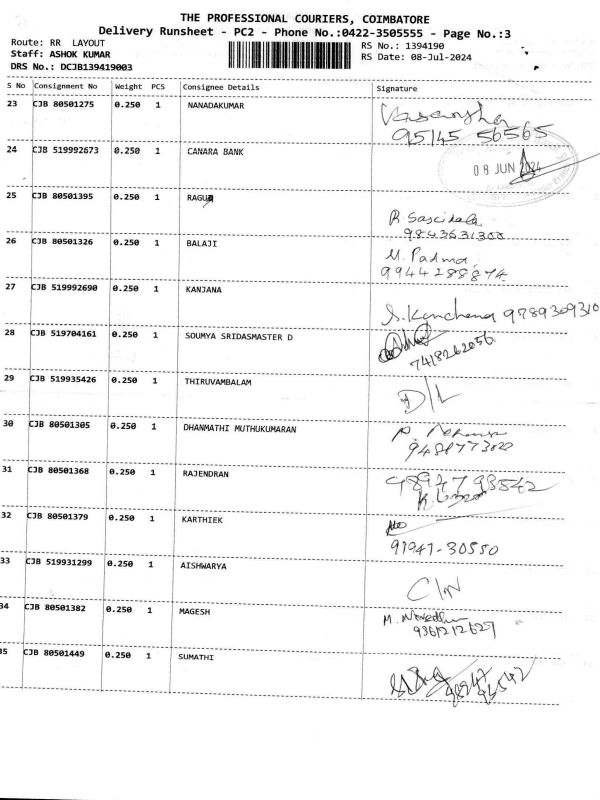 THE PROFESSIONAL COURIERS, COIMBATORE
Delivery Runsheet - PC2 - Phone No.:0422-3505555 - Page No.:3
Route: RR LAYOUT
RS No.: 1394190
Staff: ASHOK KUMAR
RS Date: 08-Jul-2024
DRS No.: DCJB139419003
S No Consignment No Weight PCS Consignee Details Signature
23 CJB 80501275 0.250 1 NANADAKUMAR
95145 56565
24 CJB 519992673 0.250 1 CANARA BANK
08 JUN 2024
25 CJB 80501395 0.250 1 RAGU
9843631300
26 CJB 80501326 0.250 1 BALAJI M. Padma
9944288874
27 CJB 519992690 0.250 1 KANJANA
S. Kanchana 9789309310
28 CJB 519704161 0.250 1 SOUMYA SRIDASMASTER D
7418262056
29 CJB 519935426 0.250 1 THIRUVAMBALAM
D/L
30 CJB 80501305 0.250 1 DHANMATHI MUTHUKUMARAN
31 CJB 80501368 0.250 1 RAJENDRAN
9894793542
32 CJB 80501379 0.250 1 KARTHIEK
91941-30550
33 CJB 519931299 0.250 1 AISHWARYA
34 CJB 80501382 0.250 1 MAGESH
9361212627
35 CJB 80501449 0.250 1 SUMATHI